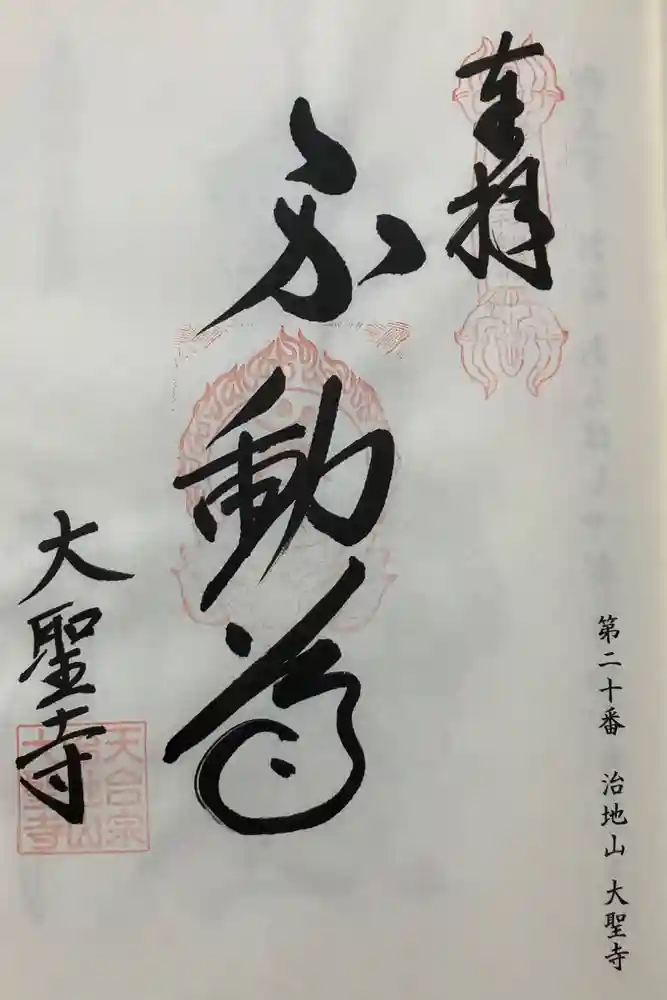 第二十番 治地山 大聖寺
奉拝
不動尊
大聖寺
天台宗
治地山
大聖寺